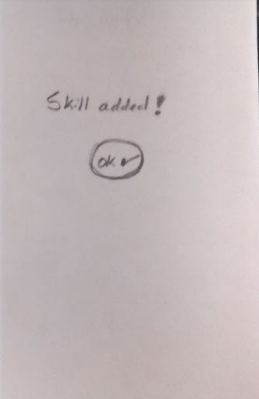 Skill added!
OK✓